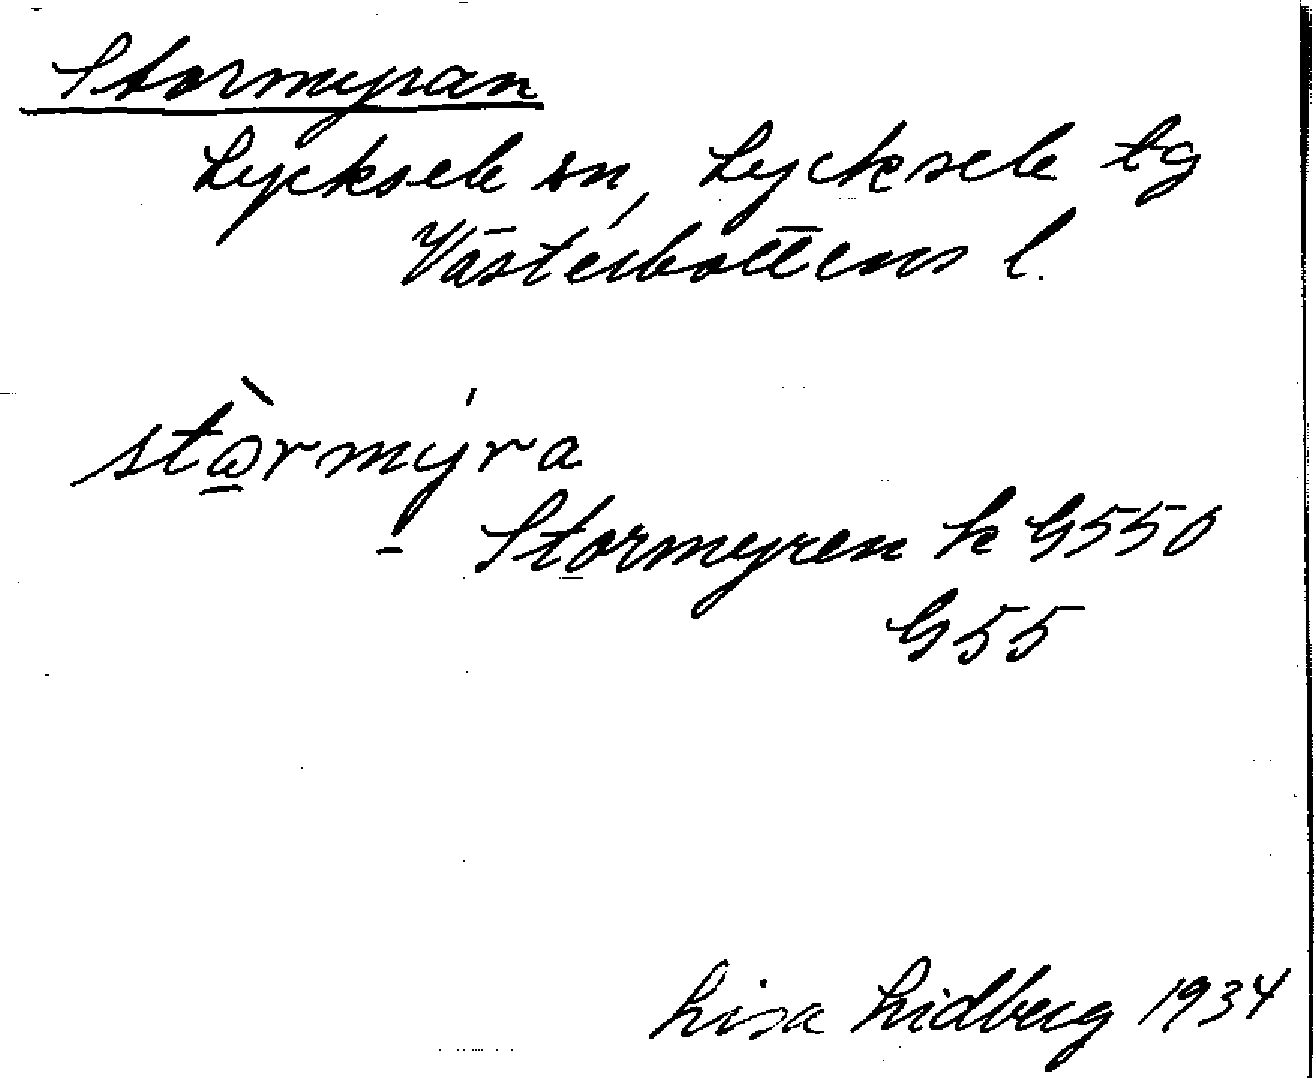 Stormyran
Lycksele sn, Lycksele tg
Västerbottens l.
stὼ̲rmýra
- Stormyren k G550
G55
Lisa Lidberg 1934